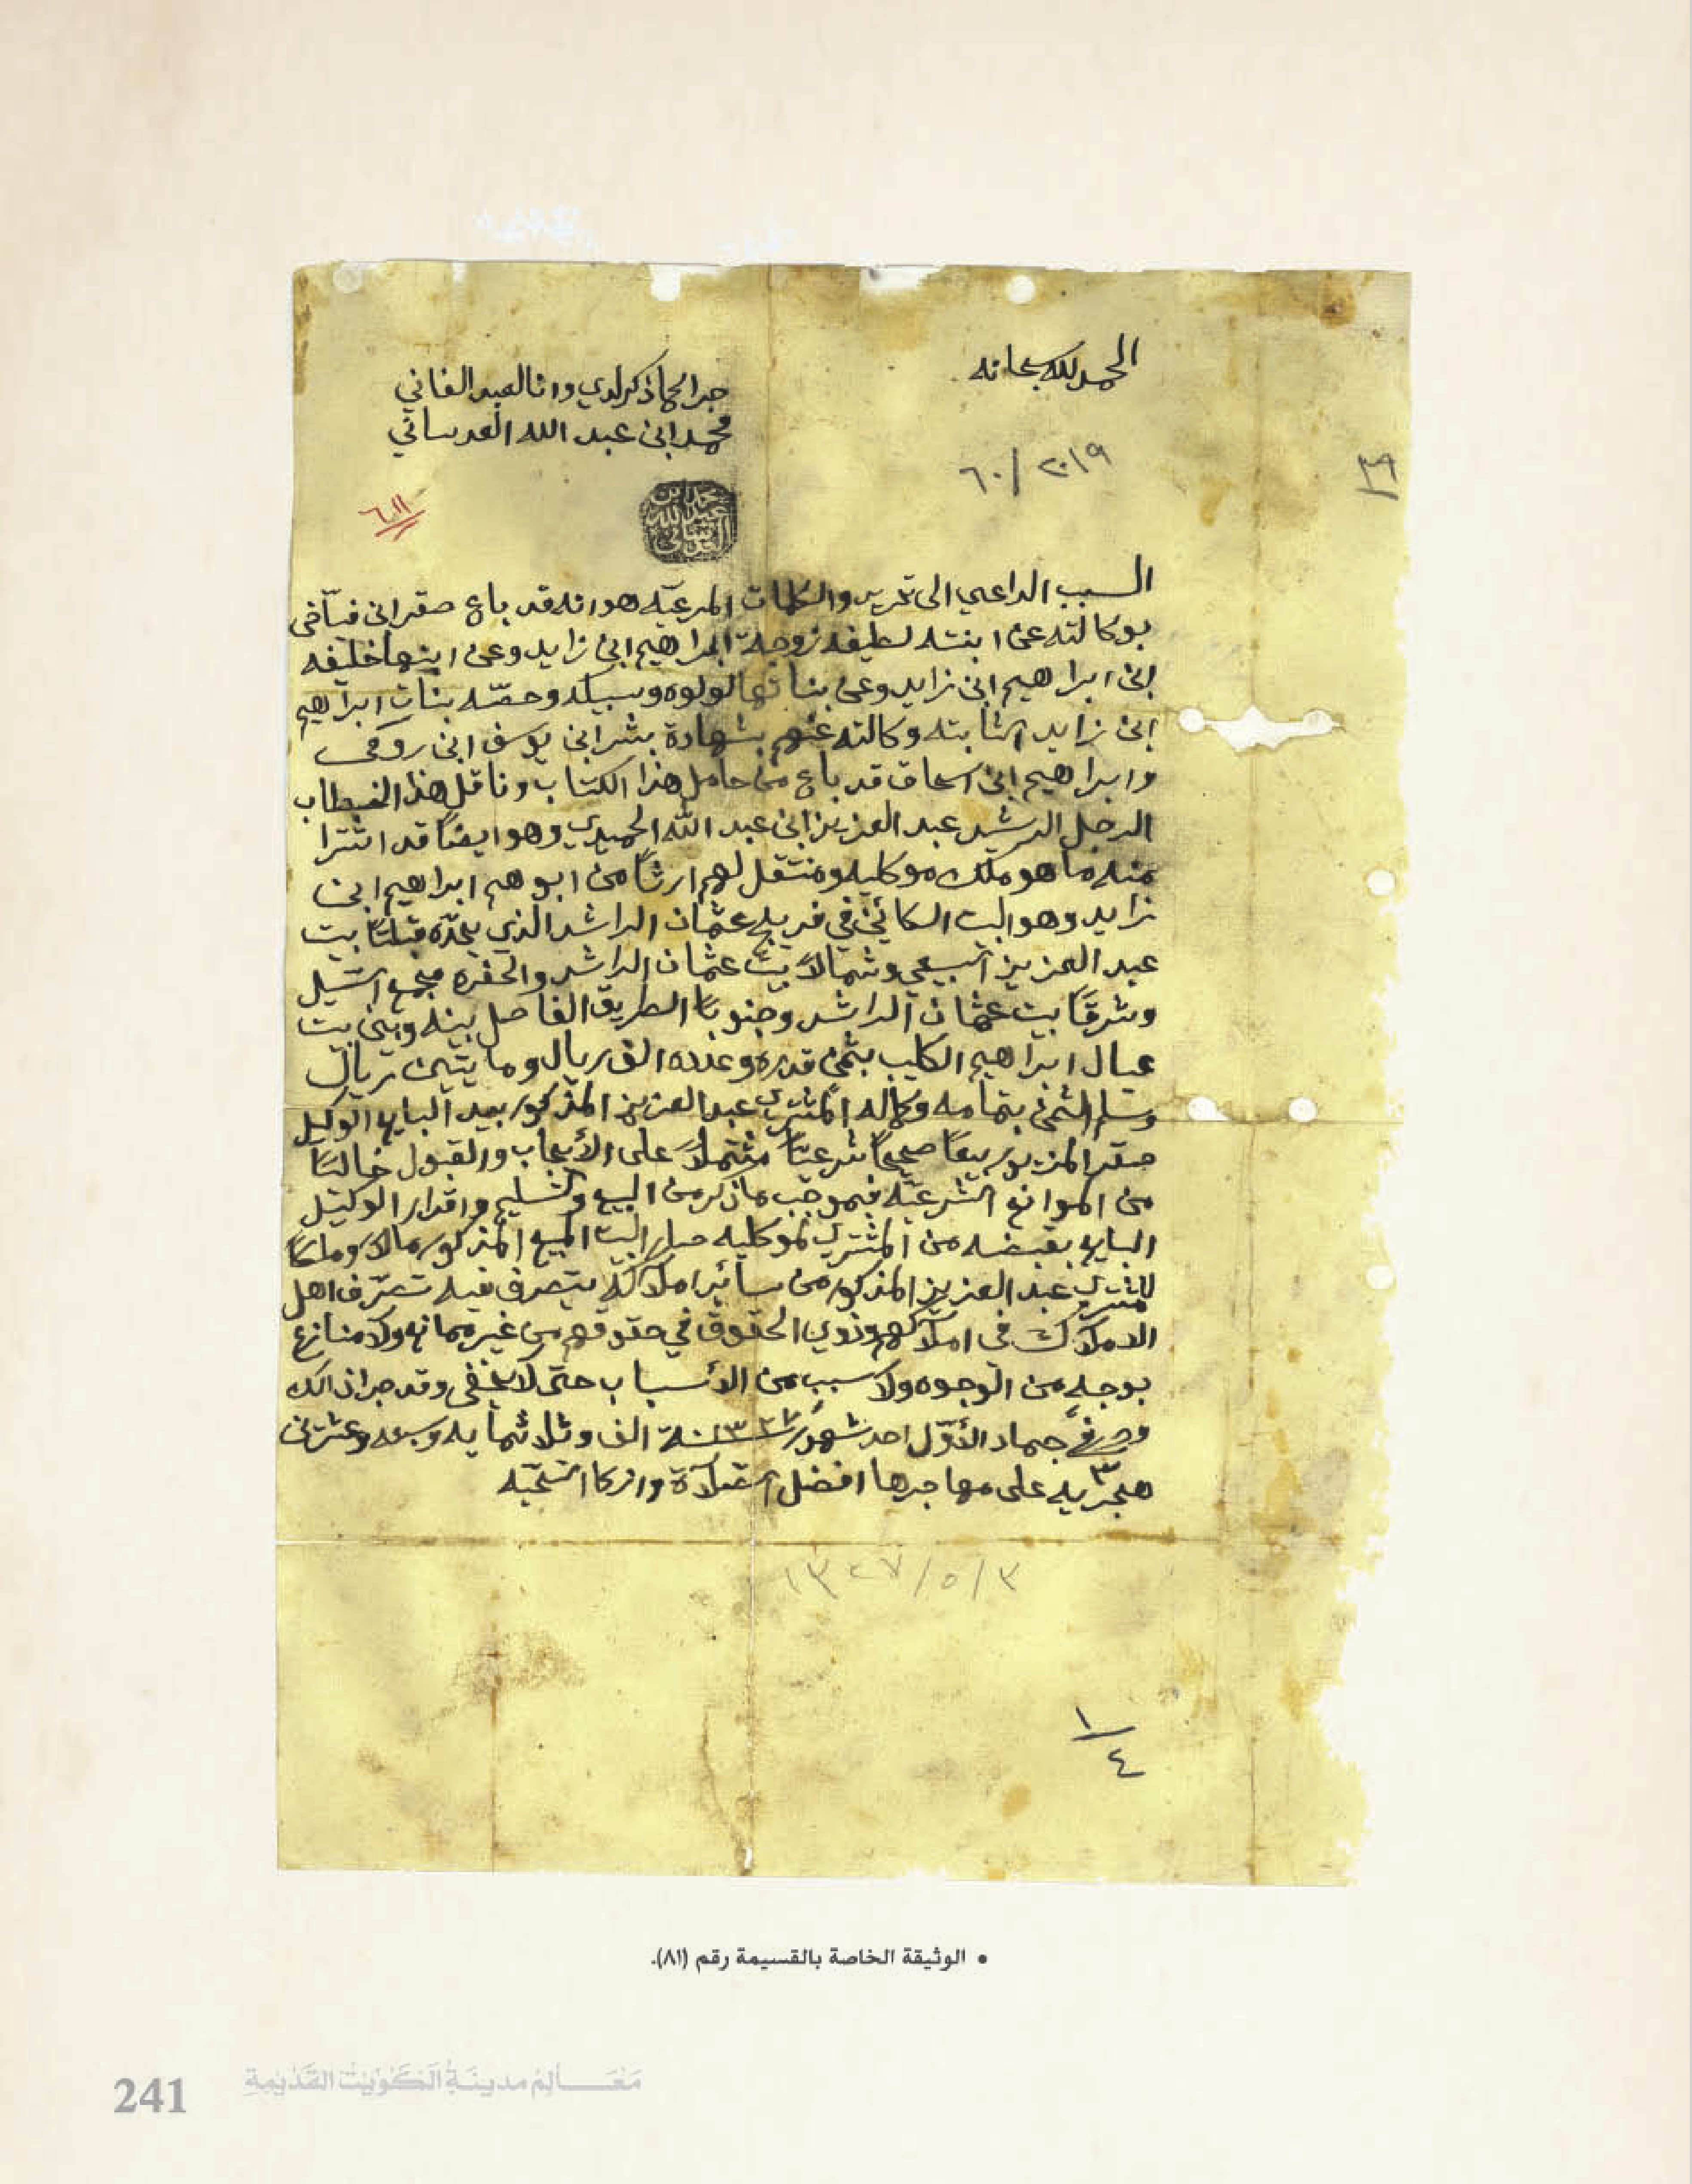 الحمد لله سبحانه
جرا لحما ذكر لدي وانا العبد الفاني
محمد ابن عبد الله العدساني
٦٠/٢٠١٩
٣٩
٦١١
محمد ابن عبد الله العدساني
السبب الداعي الى تحرير والكلمات المرعيّه هو انه قد باع صقر ابن
بوكالته عن ابنته لطيفه زوجة ابراهيم ابن زايد وعن ابنها خليفه
ابن ابراهيم ابن زايد وعن بناتها لولوه وسبيكه وحصّه بنات ابراهيم
ابن زايد الثابته وكالته عنهم بشهادة بشر ابن يوسف ابن رومي
وابراهيم ابن اسحاق قد باع من حامل هذا الكتاب وناقل هذا الخطاب
الرجل الرشيد عبد العزيز ابن عبد الله الحميدي وهو ايضا قد اشترا
منه ما هو ملك موكليه ومنتقل لهم ارثًا من ابوهم ابراهيم ابن
زايد وهو البيت الكائن في فريج عثمان الراشد الذي يحدّه قبلتًا بيت
عبد العزيز السبيعي وشمالاً بيت عثمان الراشد والحفره مجمع السّيل
وشرقًا بيت عثمان الراشد وجنوبًا الطريق الفاصل بينه وبين بيت
عيال ابراهيم الكليب بثمن قدره وعدده الف ريال ومايتين ريال
وسلم الثمن بتمامه وكماله المشتري عبد العزيز المذكور بيد البايع الوكيل
صقر المزبور بيعًا صحيحًا شرعيًا مشتملاً على الأيجاب والقبول خاليًا
من الموانع الشرعيّه فبموجب ما ذكر من البيع والتسليم واقرار الوكيل
البايع بقبضه من المشتري لموكليه صار البيت المبيع المذكور مالاً وملكًا
للمشتري عبد العزيز المذكور من سائر املاكه يتصرف فيه تصرّف اهل
الاملاك في املاكهم وذوي الحقوق في حقوقهم من غير ممانع ولا منازع
بوجهٍ من الوجوه ولا سبب من الأسباب حتى لا يخفى وقد جرا ذالك
وحرر في ٣ جماد الأوّل احد شهور ١٣٢٧ سنة الف وثلاثمايه وسبعه وعشرين
هجريه على مهاجرها افضل الصّلاة وازكا التحيّه
١٣٢٧/٥/٣
١
٤
• الوثيقة الخاصة بالقسيمة رقم (٨١).
مَعَالِم مدينَة الكُوَيْت القَدِيمَةِ
241